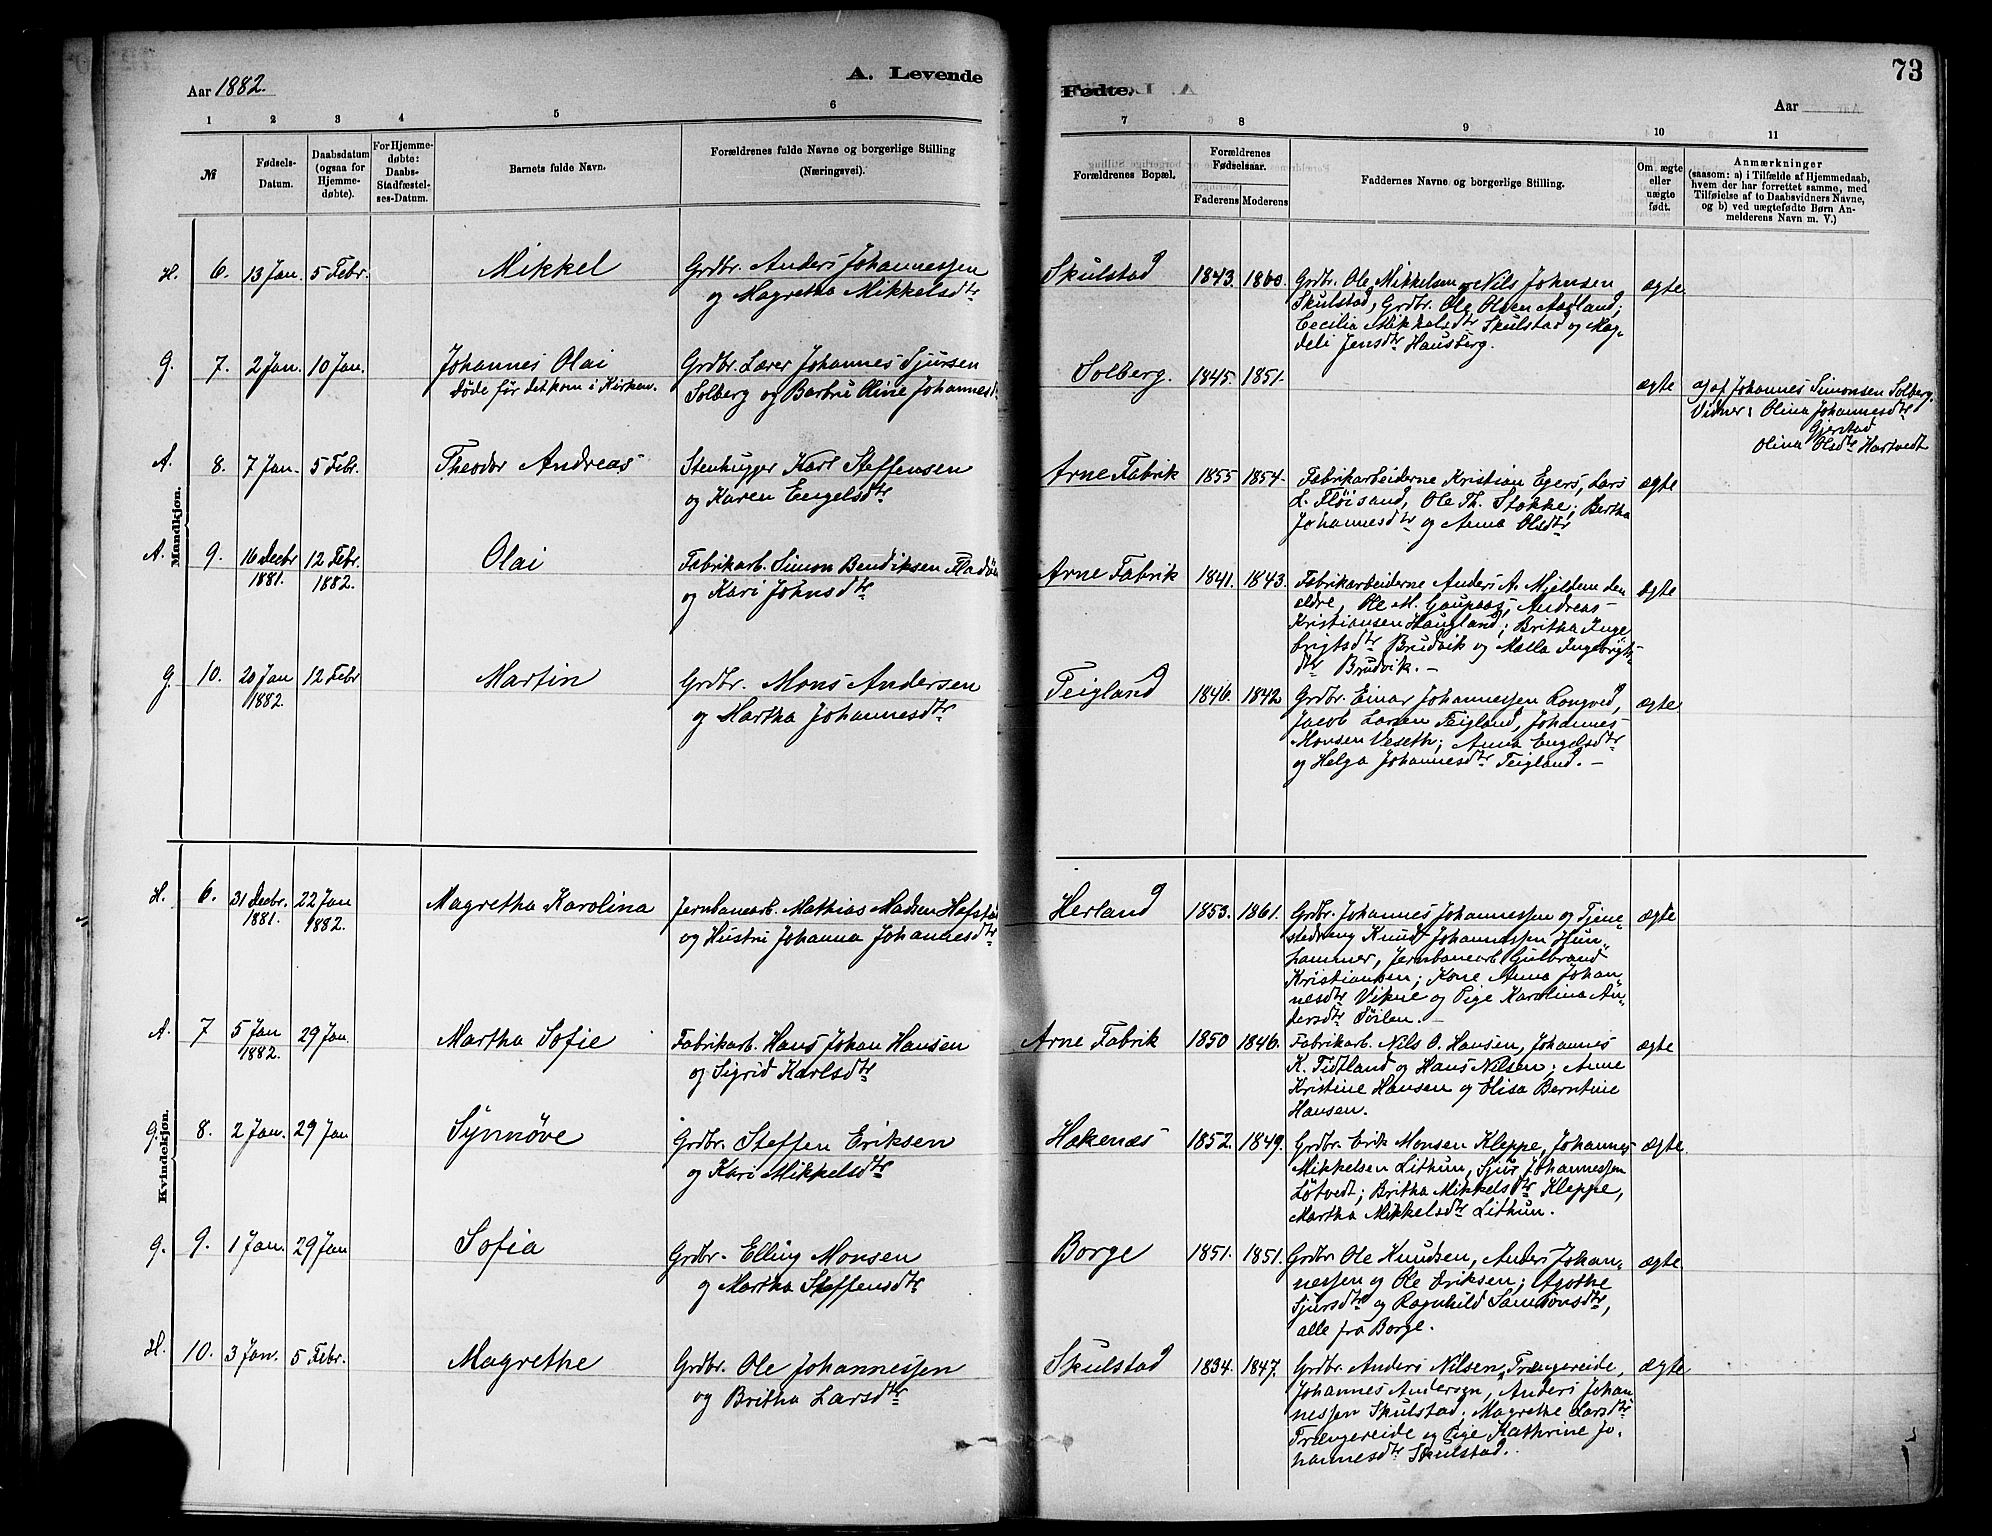 Aar 1882.
A. Levende
1 2 3 4 5 6
№
Fødsels-Datum.
Daabsdatum (ogsaa for Hjemmedøbte).
For Hjemmedøbte: Daabs-Stadfæstelses-Datum.
Barnets fulde Navn.
Forældrenes fulde Navne og borgerlige Stilling
(Næringsvei).
Mandkjøn.
H. 6. 13 Jan. 5 Febr. Mikkel Grdbr. Anders Johannessen
og Magretha Mikkelsdtr
G. 7. 2 Jan. 10 Jan. Johannes Olai Grdbr. Lærer Johannes Sjursen
døde før det kom i Kirken. Solberg og Barbru Oline Johannesd
A. 8. 7 Jan. 5 Febr. Theodor Andreas Stenhugger Karl Steffensen
og Karen Engelsdtr
A. 9. 16 Decbr 12 Febr. Olai Fabrikarb. Simon Bendiksen
1881. 1882. og Kari Johnsdtr
G. 10. 20 Jan 12 Febr Martin Grdbr. Mons Andersen
1882. og Martha Johannesdtr
Kvindekjøn.
H. 6. 31 Decbr. 22 Jan Magretha Karolina Jernbanearb. Mathias Madsen Hafsta
1881. 1882. og Hustru Johanna Johannesdtr
A. 7 5 Jan 29 Jan. Martha Sofie Fabrikarb. Hans Johan Hansen
1882. og Sigrid Karlsdtr
G. 8. 2 Jan. 29 Jan Synnöve Grdbr. Steffen Eriksen
og Kari Mikkelsdtr
G. 9. 1 Jan. 29 Jan Sofia Grdbr. Elling Monsen
og Martha Steffensdtr
H. 10. 3 Jan. 5 Febr. Magrethe Grdbr. Ole Johannessen
og Britha Larsdtr
73
Fødte.
Aar
7 8 9 10 11
Forældrenes Bopæl.
Forældrenes Fødselsaar.
Faderens Moderens
Faddernes Navne og borgerlige Stilling.
Om ægte eller uægte født.
Anmærkninger
(saasom: a) i Tilfælde af Hjemmedaab,
hvem der har forrettet samme, med
Tilføielse af to Daabsvidners Navne,
og b) ved uægtefødte Børn An-
melderens Navn m. V.)
Skulstad 1843. 1860. Grdbr. Ole Mikkelsen og Nils Johnsen ægte
Skulstad, Grdbr. Ole Olsen Aadland;
Cecilia Mikkelsdtr Skulstad og Mag-
deli Jensdtr Hausberg.
Solberg. 1845. 1851. ægte a) af Johannes Simonsen Solberg.
Vidner: Olina Johannesdtr
Gjerstad
Olina Olsdtr Hartvedt
Arne Fabrik 1855 1854. Fabrikarbeiderne Kristian Egers, Lars ægte
L. Fløisand, Ole Th. Stokke; Bertha
Johannesdtr og Anna Olsdtr
Arne Fabrik 1841. 1843. Fabrikarbeiderne Anders A. Mjeldem den ægte
ældre, Ole M. Gaupaas, Andreas
Kristiansen Haugland; Britha Inge
brigtsdtr Brudvik og Malla Ingebrigts-
dtr Brudvik. –
Teigland 1846. 1842 Grdbr. Einar Johannessen Langved, ægte
Jacob Larsen Teigland, Johannes
Monsen Veseth; Anna Engelsdtr
og Helga Johannesdtr Teigland. –
Herland 1853. 1861. Grdbr. Johannes Johannessen og Tjene- ægte
stedreng Knud Johannessen Hun-
hammer, Jernbanearb. Gulbrand
Kristiansen; Kone Anna Johan
nesdtr Vikne og Pige Karolina An-
dersdtr Söilen. –
Arne Fabrik 1850 1846. Fabrikarb. Nils O. Hansen, Johannes ægte
K. Tidtland og Hans Nilsen; Anne
Kristine Hansen og Elisa Berntine
Hansen.
Hakenæs 1852. 1849. Grdbr. Erik Monsen Kleppe, Johannes ægte
Mikkelsen Lithun, Sjur Johannessen
Løtvedt; Britha Mikkelsdtr Kleppe,
Martha Mikkelsdtr Lithun.
Borge 1851. 1851. Grdbr. Ole Knudsen, Anders Johan- ægte
nessen og Ole Eriksen; Agothe
Sjursdtr og Ragnhild Samsonsdtr,
alle fra Borge.
Skulstad 1834. 1847. Grdbr. Anders Nilsen Trengereide, ægte
Johannes Andersen, Anders Johan
nessen Skulstad; Magrethe Larsdtr
Trengereide og Pige Kathrine Jo-
hannesdtr Skulstad.